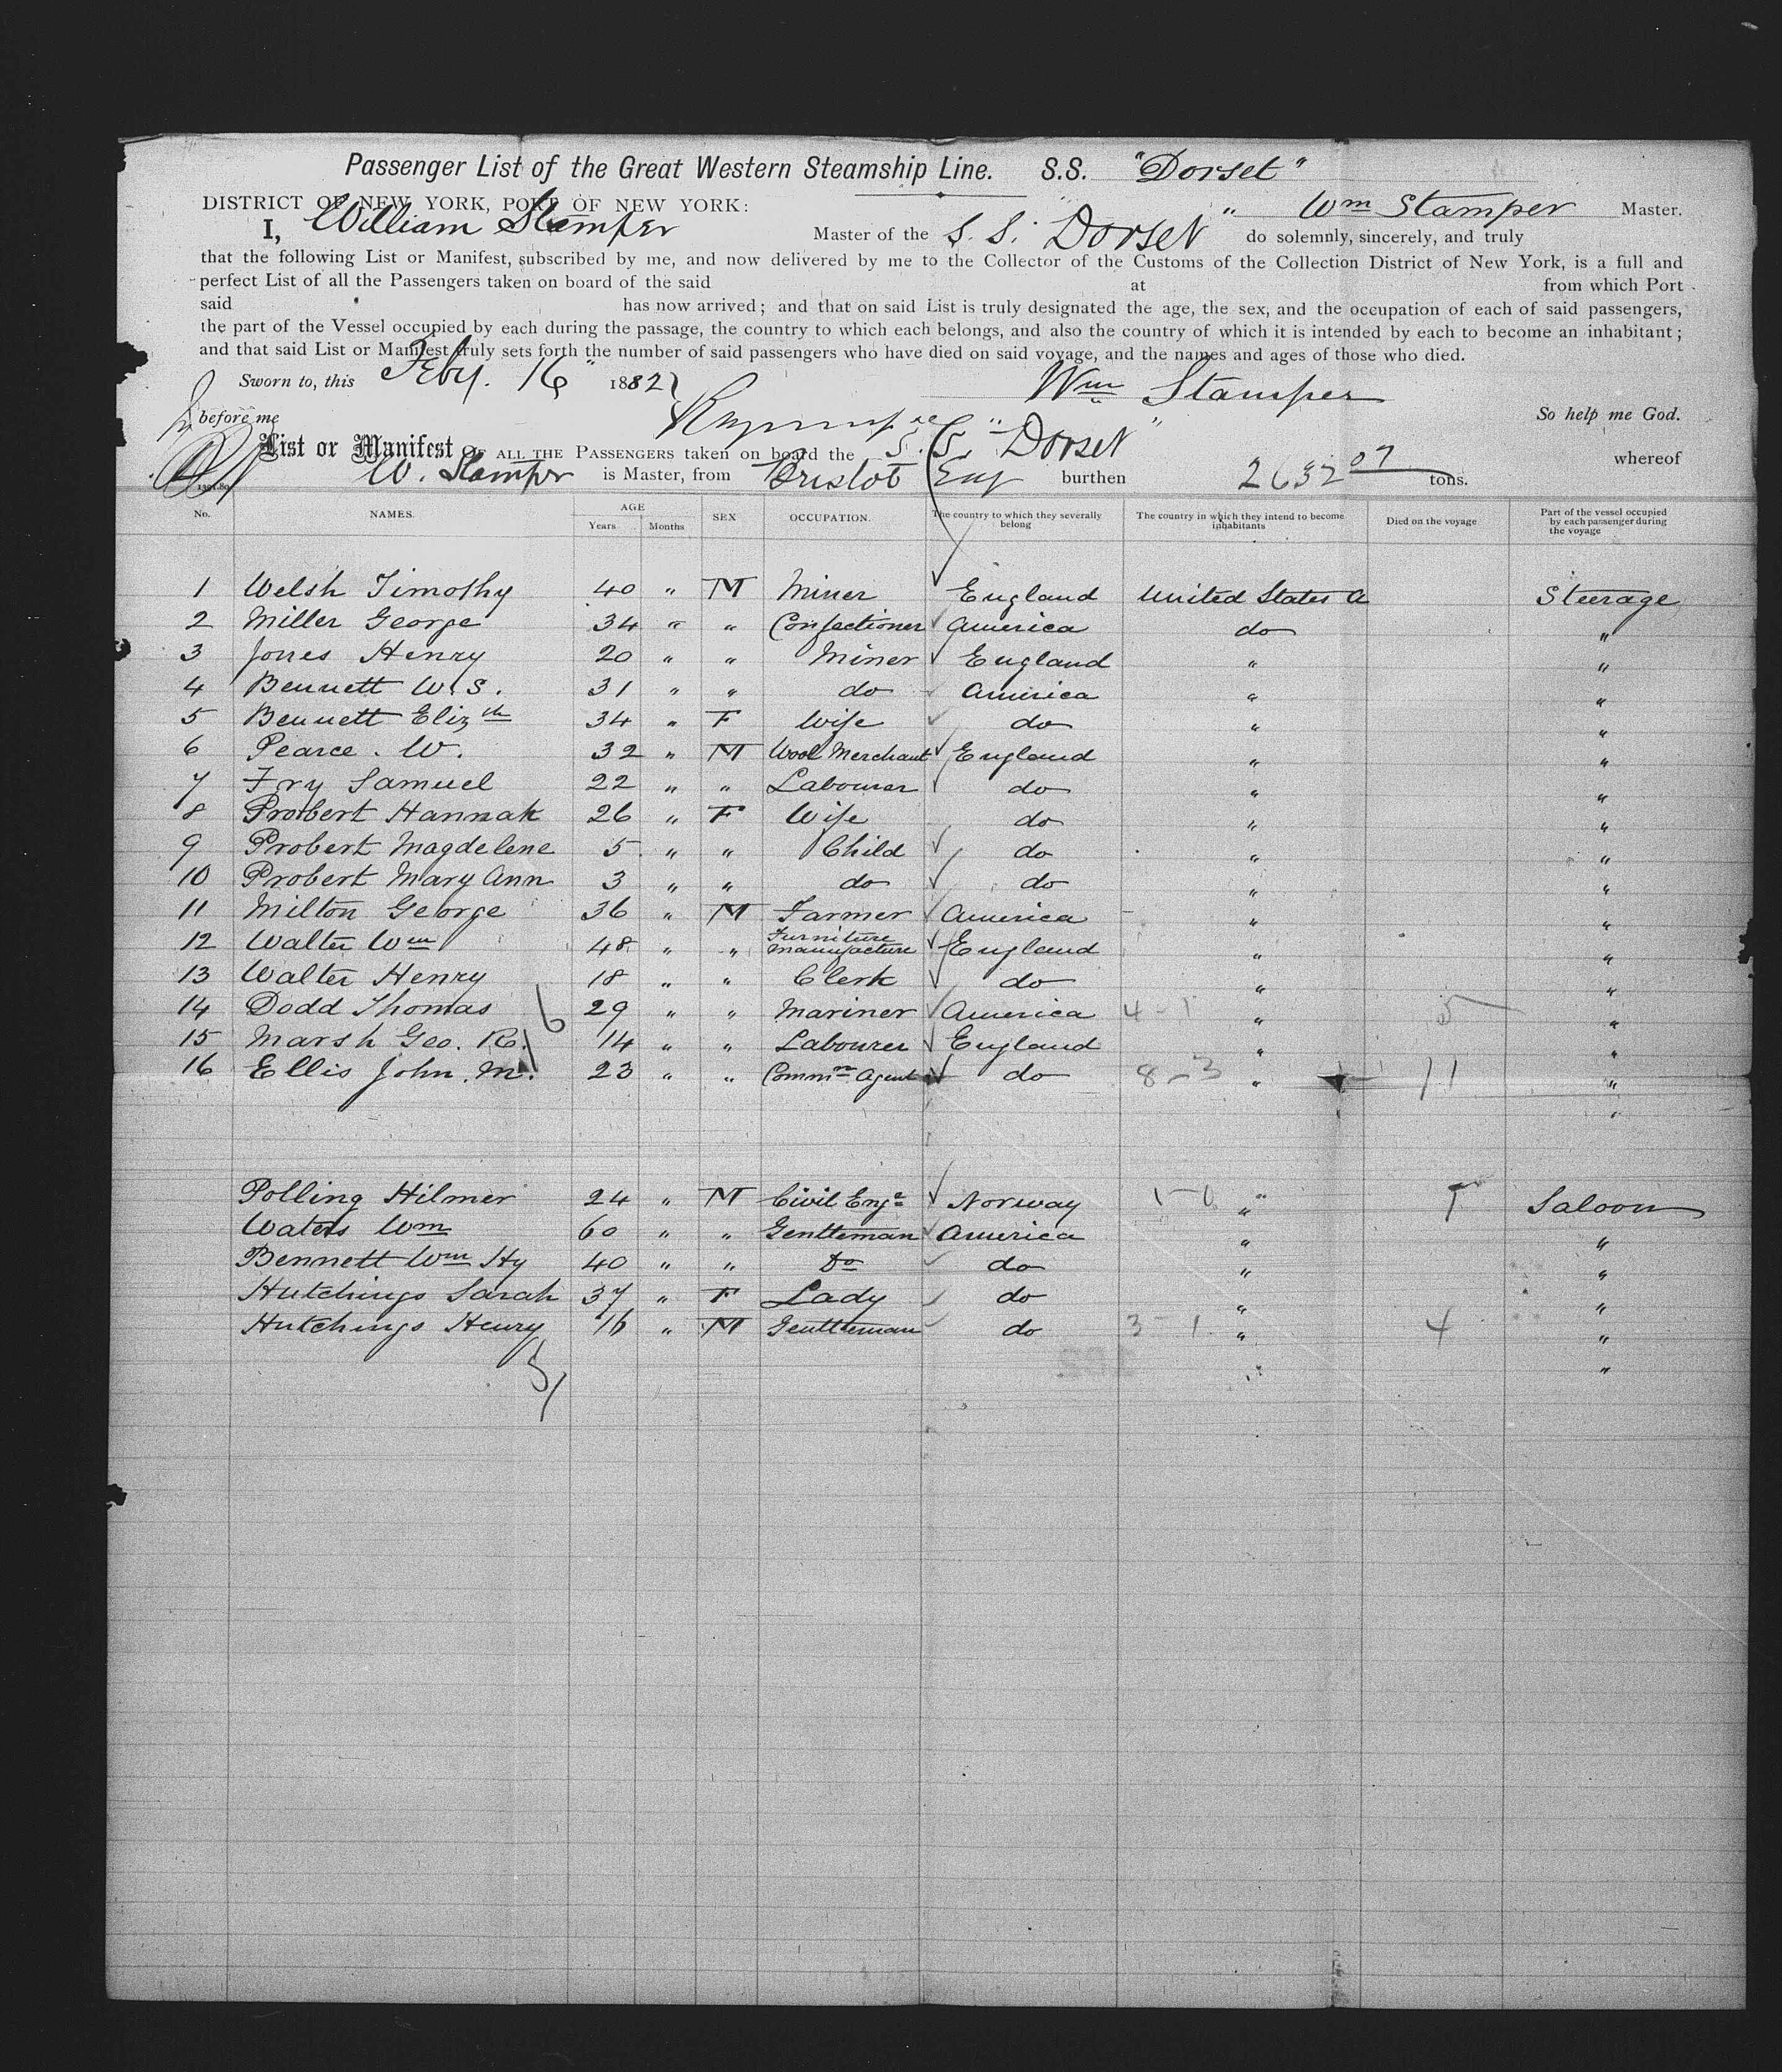 Passenger List of the Great Western Steamship Line. S.S. "Dorset"
DISTRICT OF NEW YORK, PORT OF NEW YORK: " Wm Stamper Master.
I, William Stamper Master of the S. S. Dorset do solemnly, sincerely, and truly
that the following List or Manifest, subscribed by me, and now delivered by me to the Collector of the Customs of the Collection District of New York, is a full and
perfect List of all the Passengers taken on board of the said at from which Port
said has now arrived; and that on said List is truly designated the age, the sex, and the occupation of each of said passengers,
the part of the Vessel occupied by each during the passage, the country to which each belongs, and also the country of which it is intended by each to become an inhabitant;
and that said List or Manifest truly sets forth the number of said passengers who have died on said voyage, and the names and ages of those who died.
Sworn to, this Feby. 16 1882 Wm Stamper
before me So help me God.
List or Manifest OF ALL THE PASSENGERS taken on board the S. S. "Dorset" whereof
W. Stamper is Master, from Bristol Eng burthen 2632 07 tons.
No. NAMES. AGE Years Months SEX OCCUPATION. The country to which they severally belong The country in which they intend to become inhabitants Died on the voyage Part of the vessel occupied by each passenger during the voyage
1 Welsh Timothy 40 " M Miner England United States A Steerage
2 Miller George 34 " " Confectioner America do "
3 Jones Henry 20 " " Miner England " "
4 Bennett W. S. 31 " " do America " "
5 Bennett Elizth 34 " F Wife do " "
6 Pearce . W. 32 " M Wool Merchant England " "
7 Fry Samuel 22 " " Labourer do " "
8 Probert Hannah 26 " F Wife do " "
9 Probert Magdelene 5 " " Child do " "
10 Probert Mary Ann 3 " " do do " "
11 Milton George 36 " M Farmer America " "
12 Walter Wm 48 " " Furniture manufacture England " "
13 Walter Henry 18 " " Clerk do " "
14 Dodd Thomas 29 " " Mariner America 4 - 1 " 5 "
15 Marsh Geo. R. 14 " " Labourer England " "
16 Ellis John. M. 23 " " Commn Agent do 8 - 3 " 11 "
"
Polling Hilmer 24 " M Civil Engr Norway 1 - 0 " 1 Saloon
Waters Wm 60 " " Gentleman America " "
Bennett Wm Hy 40 " " Do do " "
Hutchings Sarah 37 " F Lady do " "
Hutchings Henry 16 " M Gentleman do 3 - 1 " 4 "
5/ " "